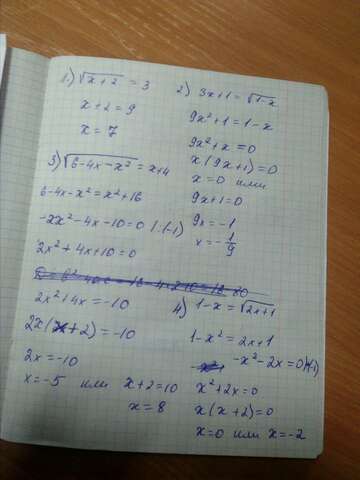 1.) √x+2 = 3
x+2=9
x=7
2) 3x+1=√1-x
9x²+1=1-x
9x²+x=0
x(9x+1)=0
x=0 или
9x+1=0
9x=-1
x=-1/9
3) √6-4x-x² = x+4
6-4x-x²=x²+16
-2x²-4x-10=0 |·(-1)
2x²+4x+10=0
2x²+4x=-10
2x(x+2)=-10
2x=-10
x=-5 или x+2=10
x=8
4) 1-x=√2x+1
1-x²=2x+1
-x²-2x=0 |·(-1)
x²+2x=0
x(x+2)=0
x=0 или x=-2